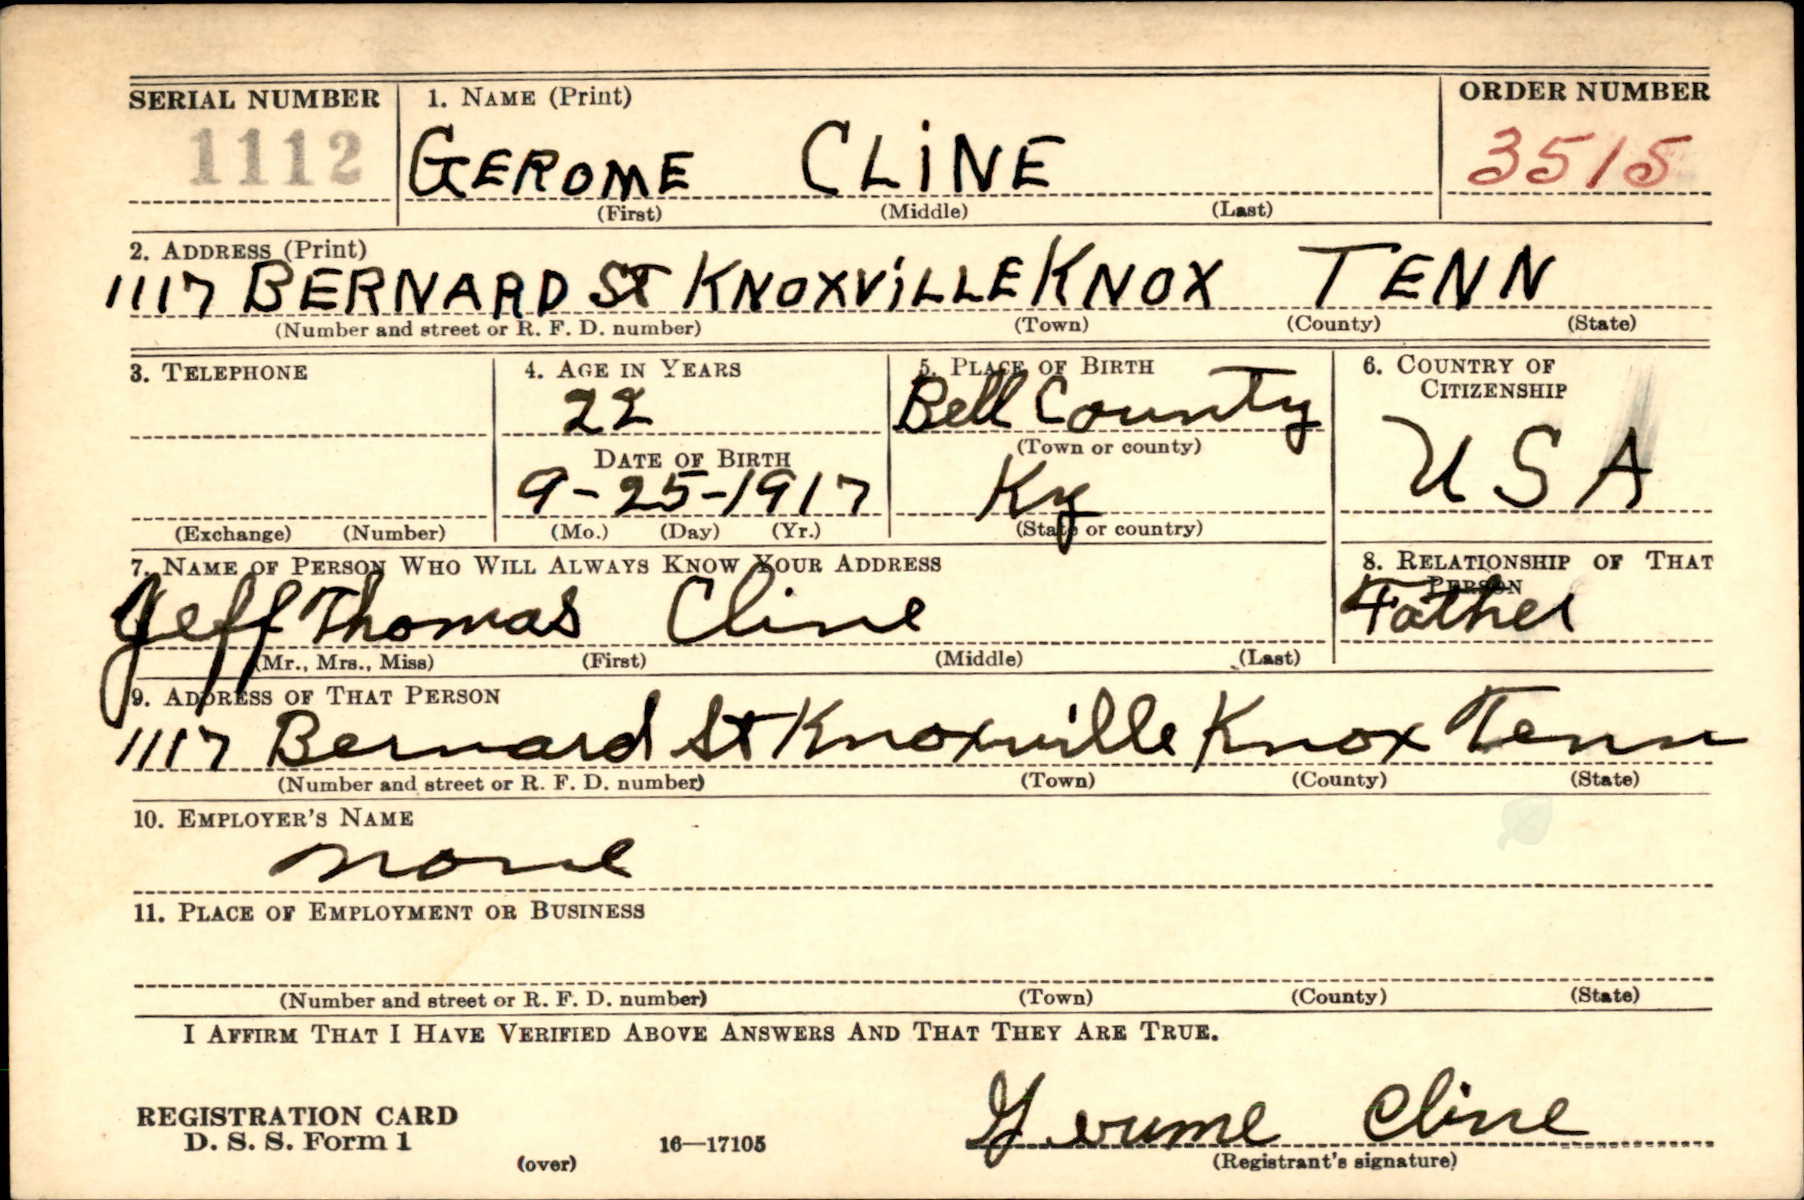 SERIAL NUMBER 1. NAME (Print) ORDER NUMBER
1112 GEROME CLINE 3515
(First) (Middle) (Last)
2. ADDRESS (Print)
1117 BERNARD ST KNOXVILLE KNOX TENN
(Number and street or R. F. D. number) (Town) (County) (State)
3. TELEPHONE 4. AGE IN YEARS 5. PLACE OF BIRTH 6. COUNTRY OF CITIZENSHIP
22 Bell County
(Town or county)
DATE OF BIRTH
9-25-1917 Ky USA
(Exchange) (Number) (Mo.) (Day) (Yr.) (State or country)
7. NAME OF PERSON WHO WILL ALWAYS KNOW YOUR ADDRESS 8. RELATIONSHIP OF THAT PERSON
Jeff Thomas Cline Father
(Mr., Mrs., Miss) (First) (Middle) (Last)
9. ADDRESS OF THAT PERSON
1117 Bernard St Knoxville Knox Tenn
(Number and street or R. F. D. number) (Town) (County) (State)
10. EMPLOYER'S NAME
none
11. PLACE OF EMPLOYMENT OR BUSINESS
(Number and street or R. F. D. number) (Town) (County) (State)
I AFFIRM THAT I HAVE VERIFIED ABOVE ANSWERS AND THAT THEY ARE TRUE.
REGISTRATION CARD
D. S. S. Form 1 16—17105 Gerome Cline
(over) (Registrant's signature)